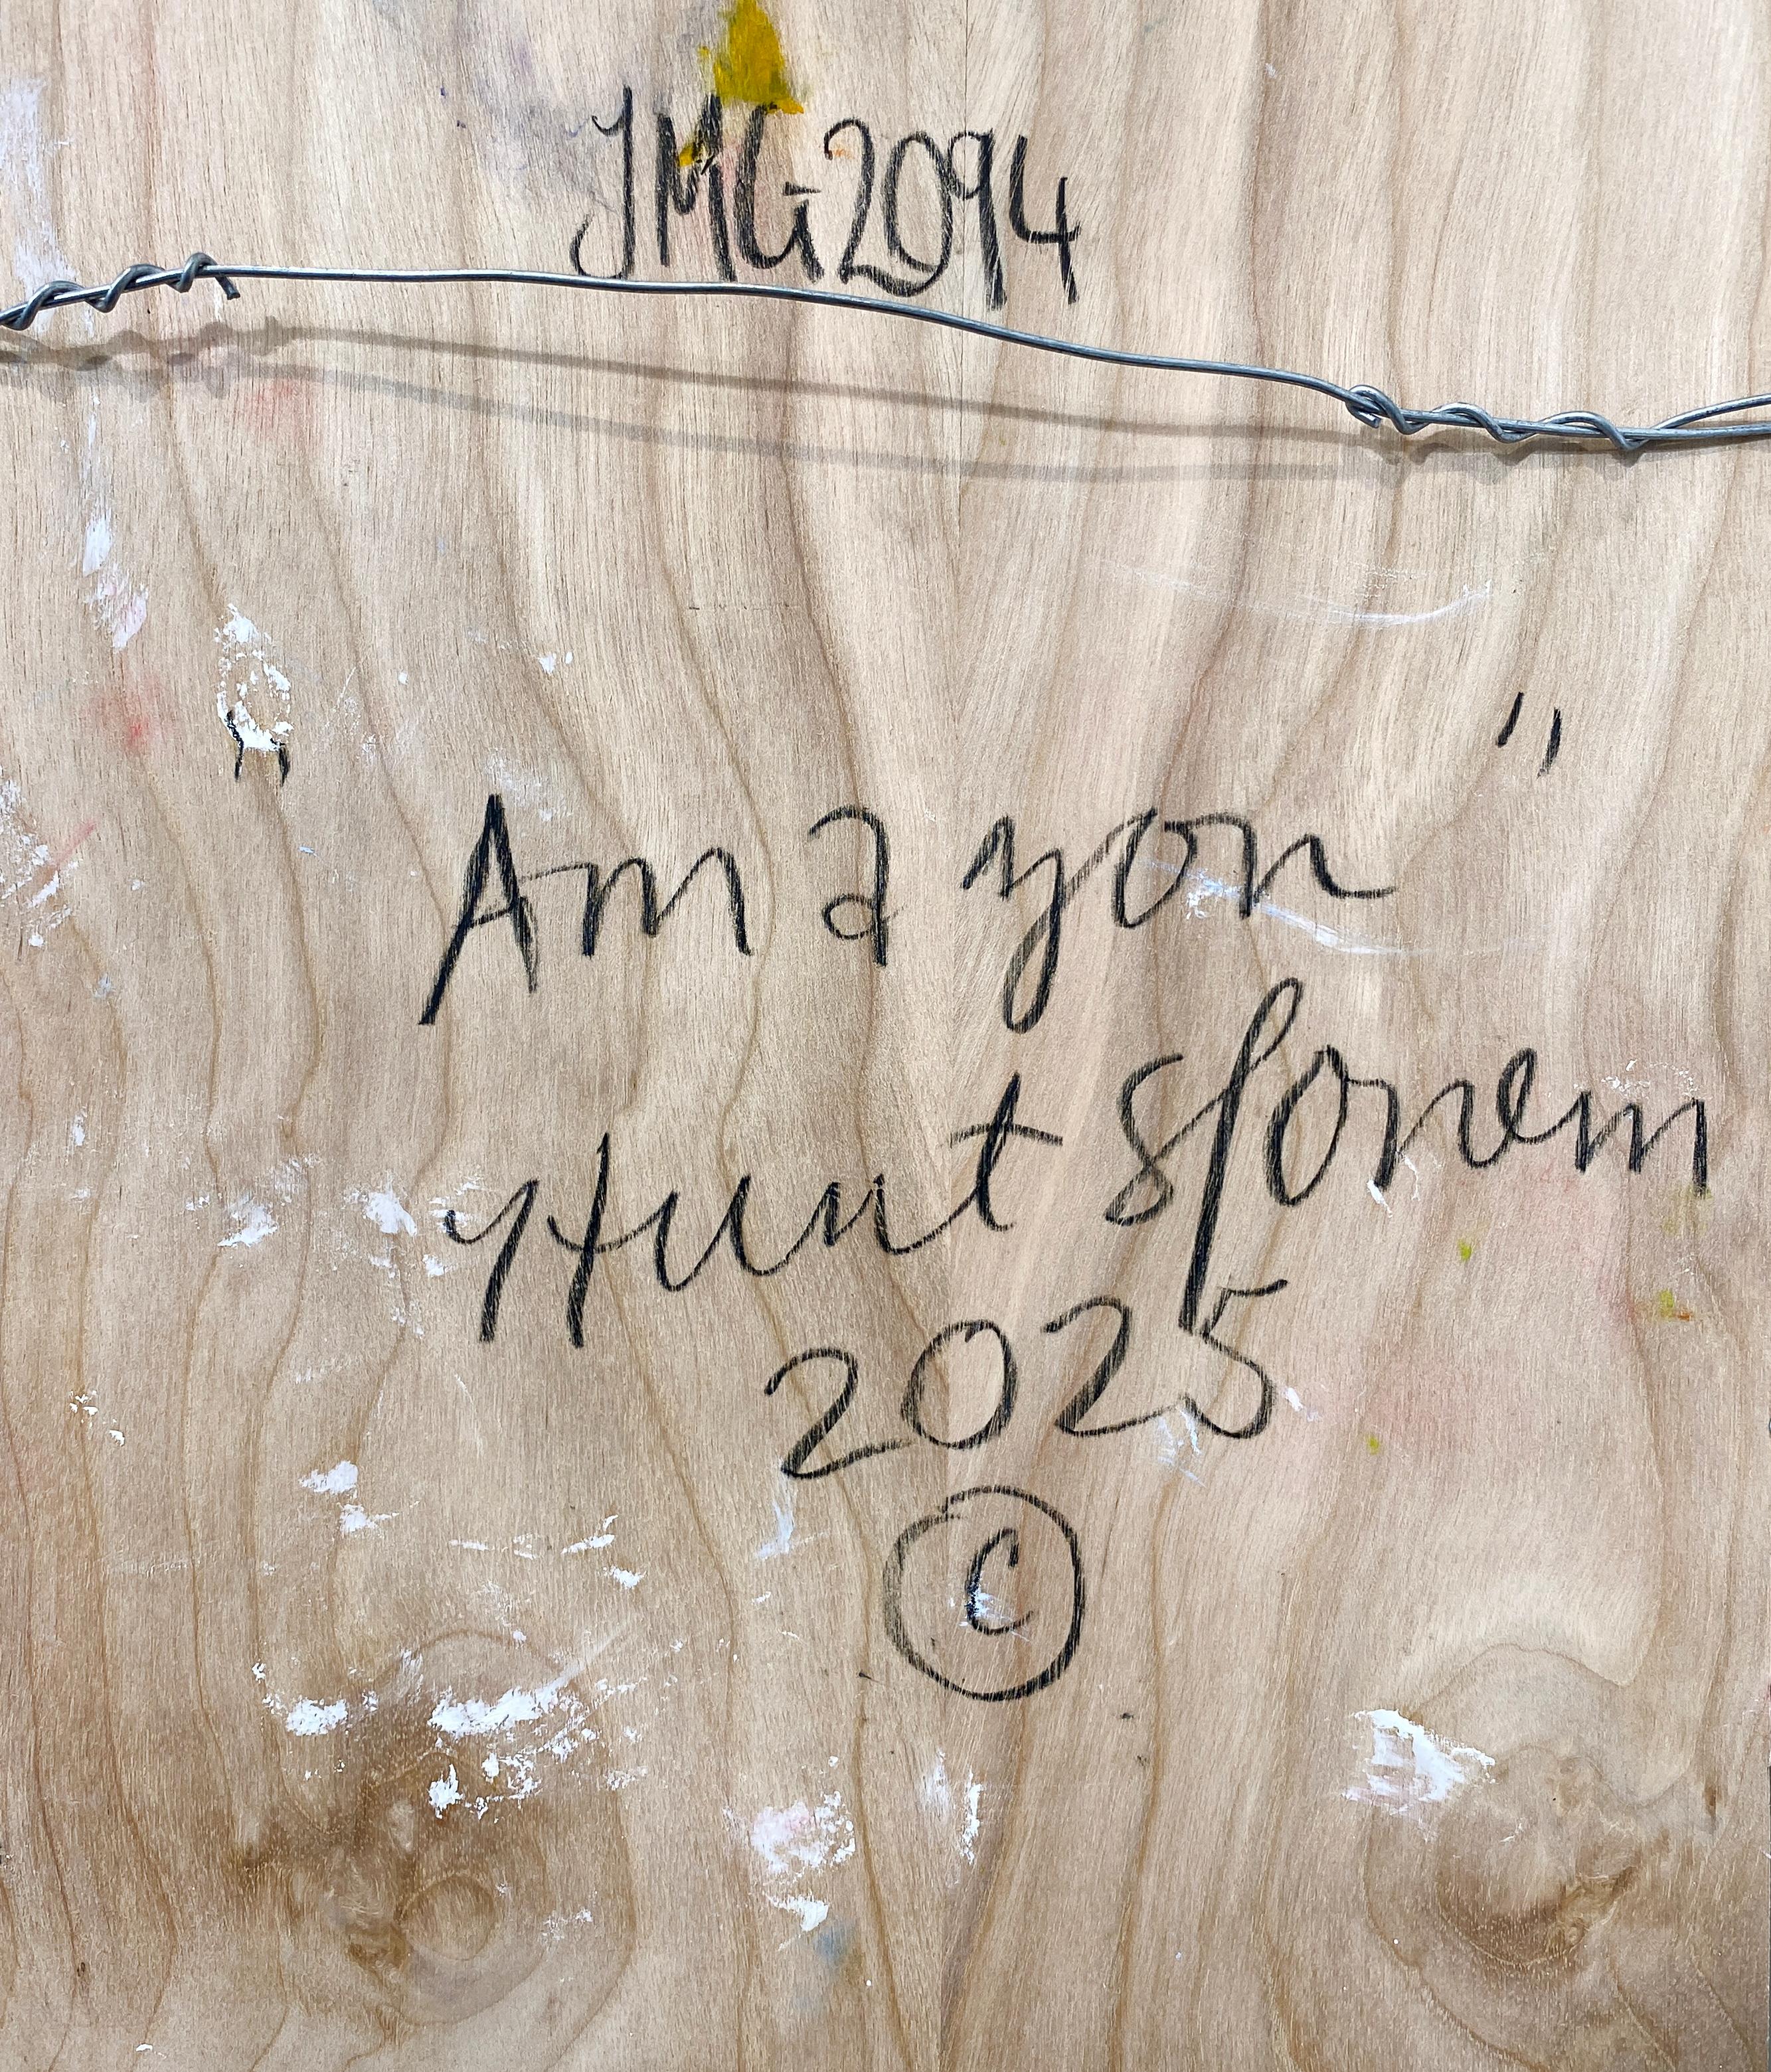 JMG2094
"Amazon"
Hunt Slonem
2025
©